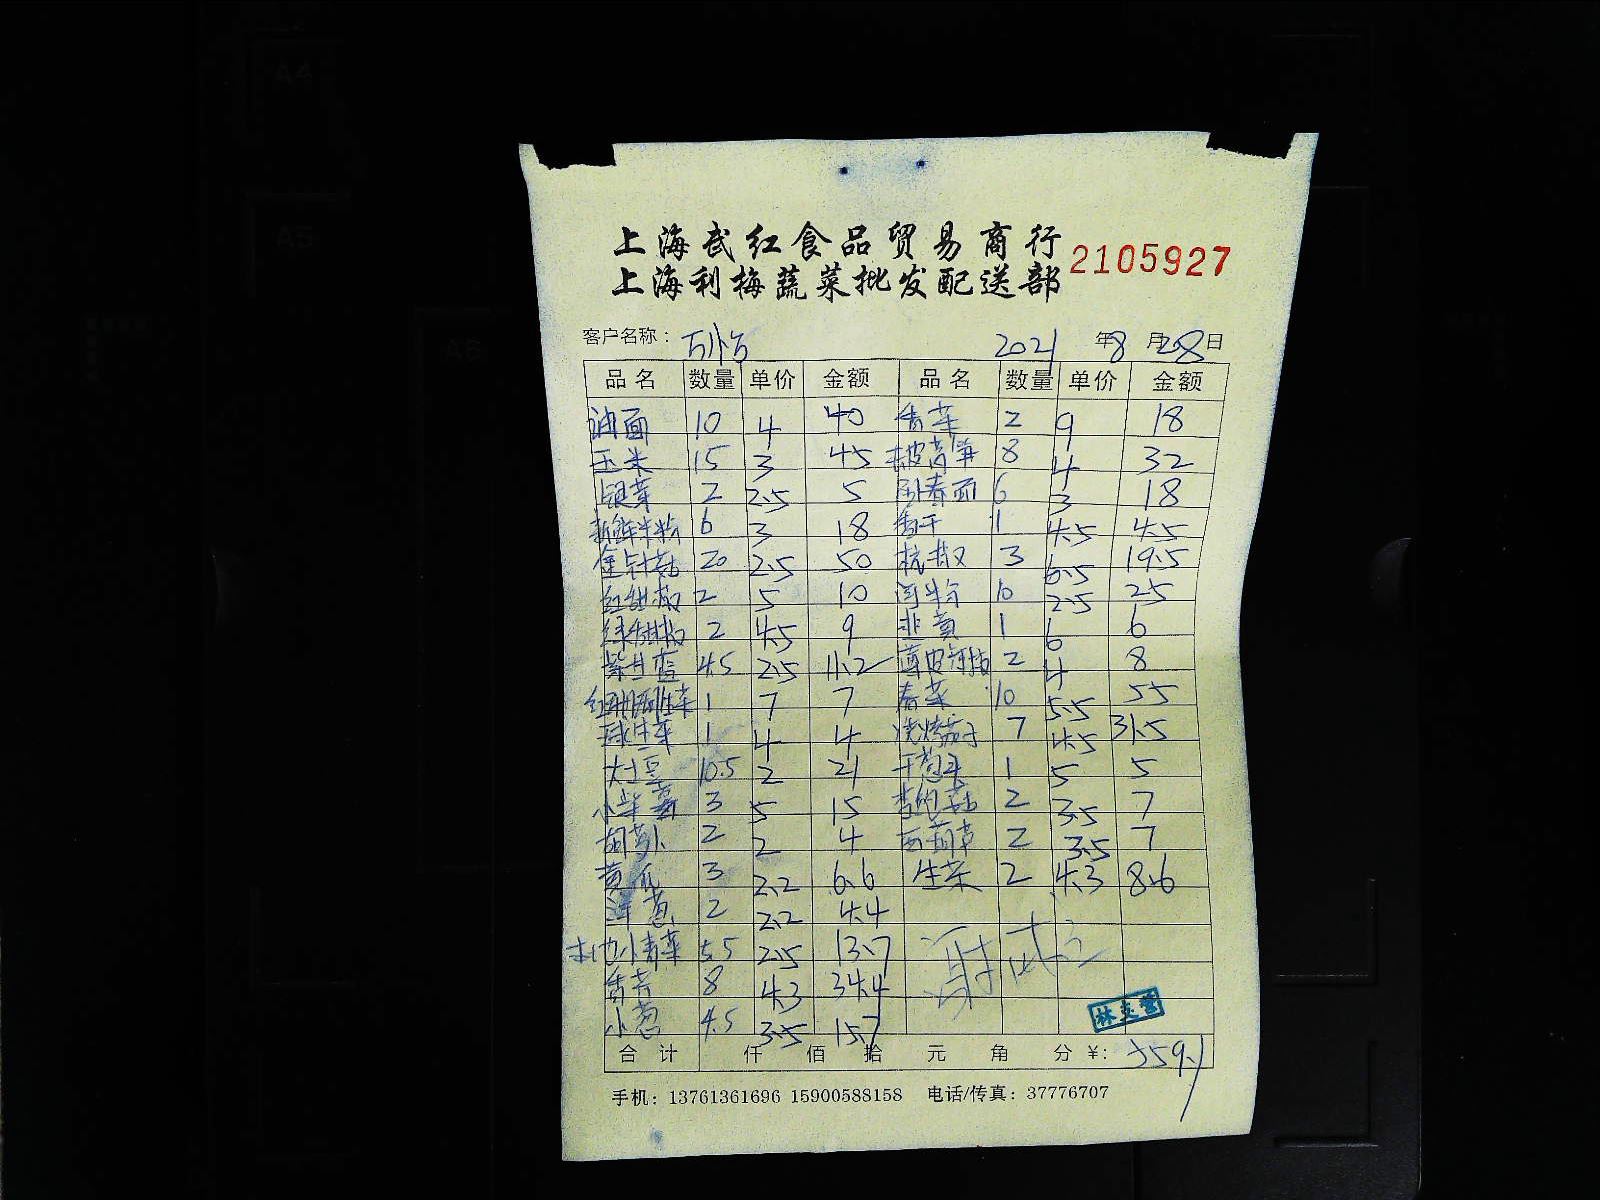 上海武红食品贸易商行
上海利梅蔬菜批发配送部
2105927
客户名称： 2021 年 8 月 28 日
品名 数量 单价 金额 品名 数量 单价 金额
油面 10 4 40 香菜 2 9 18
玉米 15 3 45 8 4 32
银芽 2 2.5 5 阳春面 6 3 18
新鲜米粉 6 3 18 香干 1 4.5 4.5
金针菇 20 2.5 50 杭椒 3 6.5 19.5
红甜椒 2 5 10 河粉 10 2.5 25
绿甜椒 2 4.5 9 韭黄 1 6 6
紫甘蓝 4.5 2.5 11.2 薄皮青椒 2 4 8
红珊瑚生菜 1 7 7 春菜 10 5.5 55
球生菜 1 4 4 烧烤茄子 7 4.5 31.5
大土豆 10.5 2 21 干葱头 1 5 5
小米 3 5 15 杏鲍菇 2 3.5 7
胡萝卜 2 2 4 西葫芦 2 3.5 7
黄瓜 3 2.2 6.6 生菜 2 4.3 8.6
洋葱 2 2.2 4.4
本地小青菜 5.5 2.5 13.7
香芹 8 4.3 34.4
小葱 4.5 3.5 15.7
林支营
合计 仟 佰 拾 元 角 分 ¥: 559.1
手机：13761361696 15900588158 电话/传真：37776707